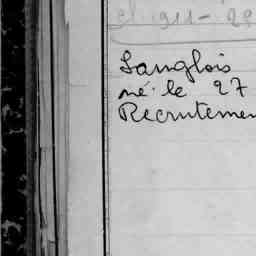 cl. 911 - 29
Langlois
né le 27
Recrutemen